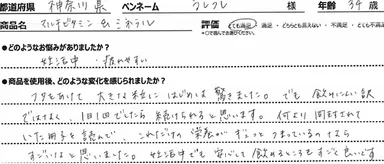 都道府県 神奈川県 ペンネーム うしくし 様 年齢 34歳
商品名 マルチビタミン&ミネラル 評価 とても満足 ・ 満足 ・ どちらとも言えない ・ 不満足 ・ とても不満
*○で囲んでお選びください。
●どのようなお悩みがありましたか?
妊活中・疲れやすい
●商品を使用後、どのような変化を感じられましたか?
フタをあけて 大きな粒に はじめは 驚きました。でも 飲みにくい訳
ではなく、1日1回でしたら 続けられると思います。何より 同封されて
いた冊子を読んで、これだけの 栄養が ぎゅっと つまっているのなら
すごいなと 思いました。妊活中でも 安心して 飲めるところも すごく良いです